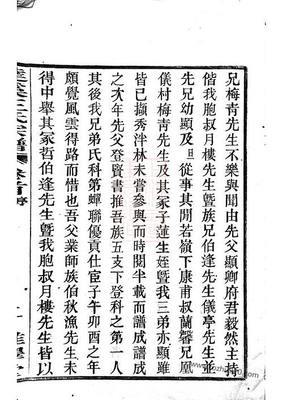 兄梅青先生不樂與聞由先父顯卿府君毅然主持
偕我胞叔月樓先生暨族兄伯逢先生儀亭先生並
先兄幼顯及旦從事其間若嶺下康甫叔蘭馨兄凰
儀村梅青先生及其冢子蓮生姪暨我三弟亦顯雖
皆已擷秀泮林未嘗參與而時閱半載而譜成譜成
之次年先父登賢書推吾族五支下登科之第一人
其後我兄弟氏科第蟬聯優貢仕宦子午卯酉之年
頗覺風雲得路而惜也吾父業師族伯秋漁先生未
得中舉其冢哲伯逢先生暨我胞叔月樓先生皆以